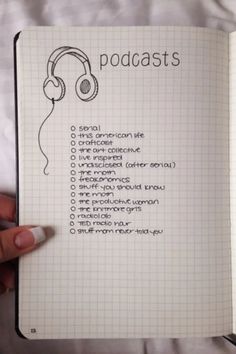 podcasts
o serial
o this american life
o craftcast
o the art collective
o live inspired
o undisclosed (after serial)
o the moth
o freakonomics
o stuff you should know
o the moth
o the productive woman
o the knitmore girls
o radiolab
o TED radio hour
o stuff mom never told you